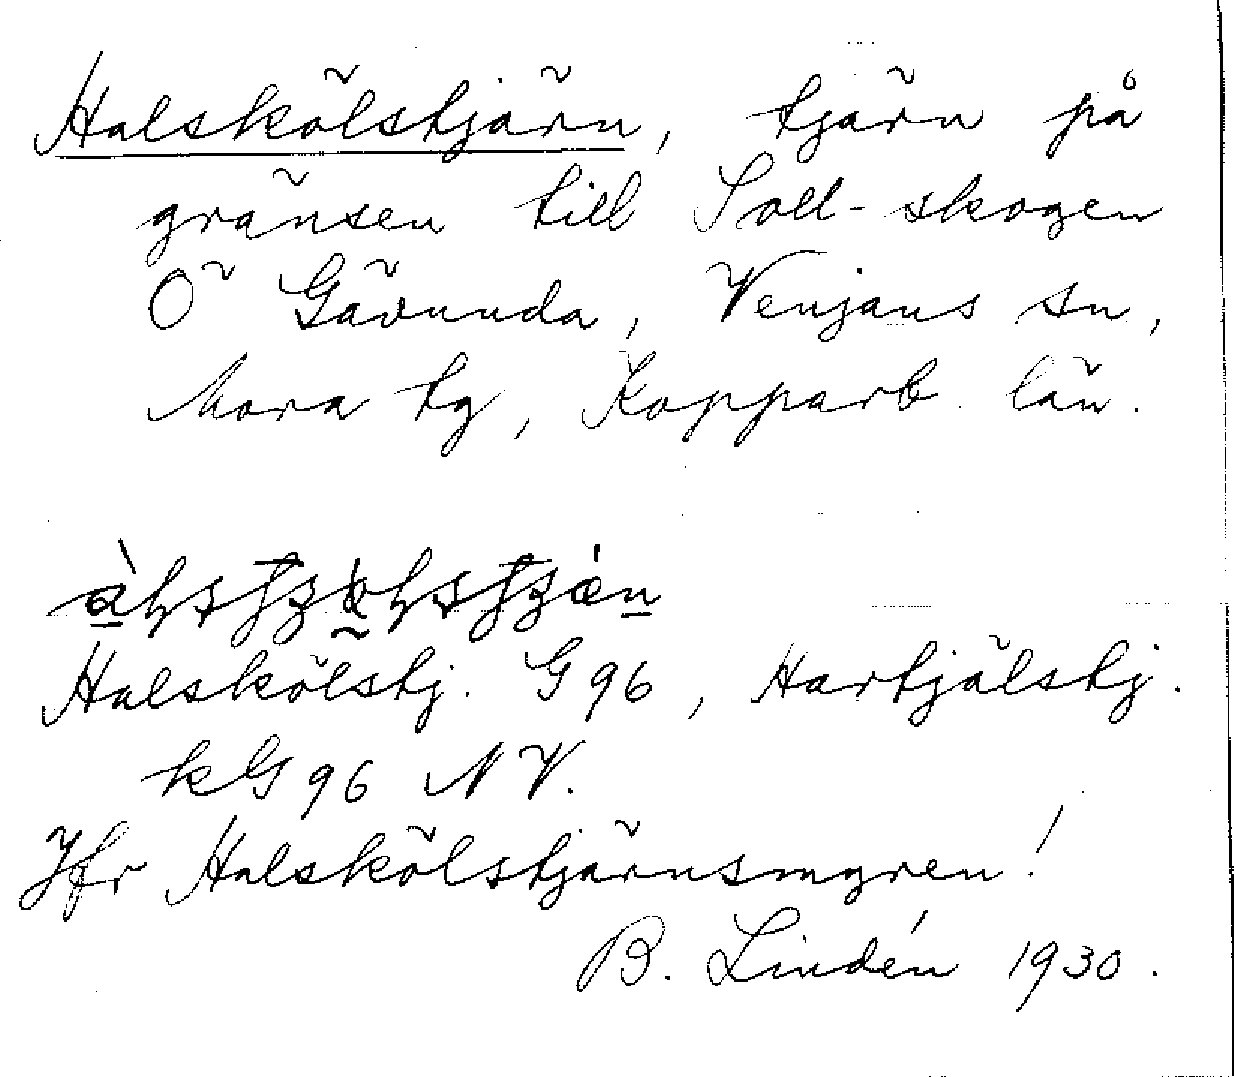 Halskölstjärn, tjärn på
gränsen till Soll-skogen
Ö Gävunda, Venjans sn,
Mora tg, Kopparb. län.
Halskölstj. G 96, Hartjälstj.
kG 96 NV.
Jfr Halskölstjärnsmyren!
B. Lindén 1930.